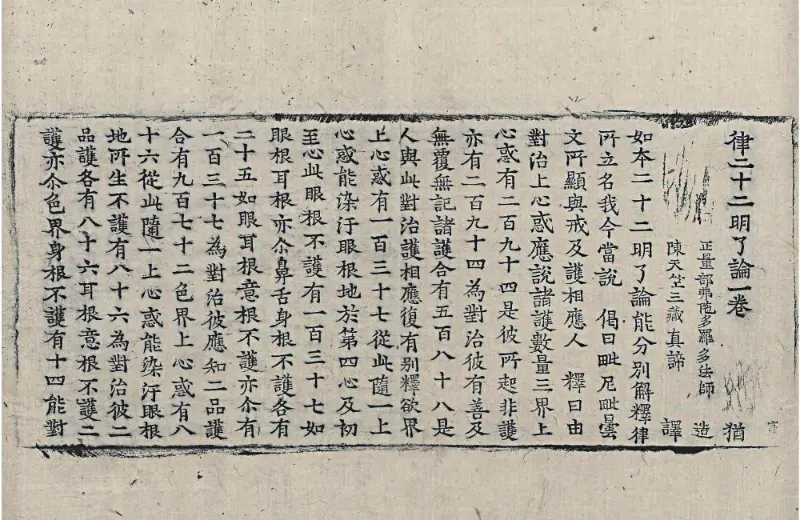 律二十二明了論一卷 猶
正量部弗陀多羅多法師 造
陳天竺三藏真諦 譯
如本二十二明了論能分別解釋律
所立名我今當說 偈曰毗尼毗曇
文所顯與戒及護相應人 釋曰由
對治上心惑應說諸護數量三界上
心惑有二百九十四是彼所起非護
亦有二百九十四為對治彼有善及
無覆無記諸護合有五百八十八是
人與此對治護相應復有別釋欲界
上心惑有一百三十七從此隨一上
心惑能染汙眼根地於第四心及初
至心此眼根不護有一百三十七如
眼根耳根亦尒鼻舌身根不護各有
二十五如眼耳根意根不護亦尒有
一百三十七為對治彼應知二品護
合有九百七十二色界上心惑有八
十六從此隨一上心惑能染汙眼根
地所生不護有八十六為對治彼二
品護各有八十六耳根意根不護二
護亦尒色界身根不護有十四能對